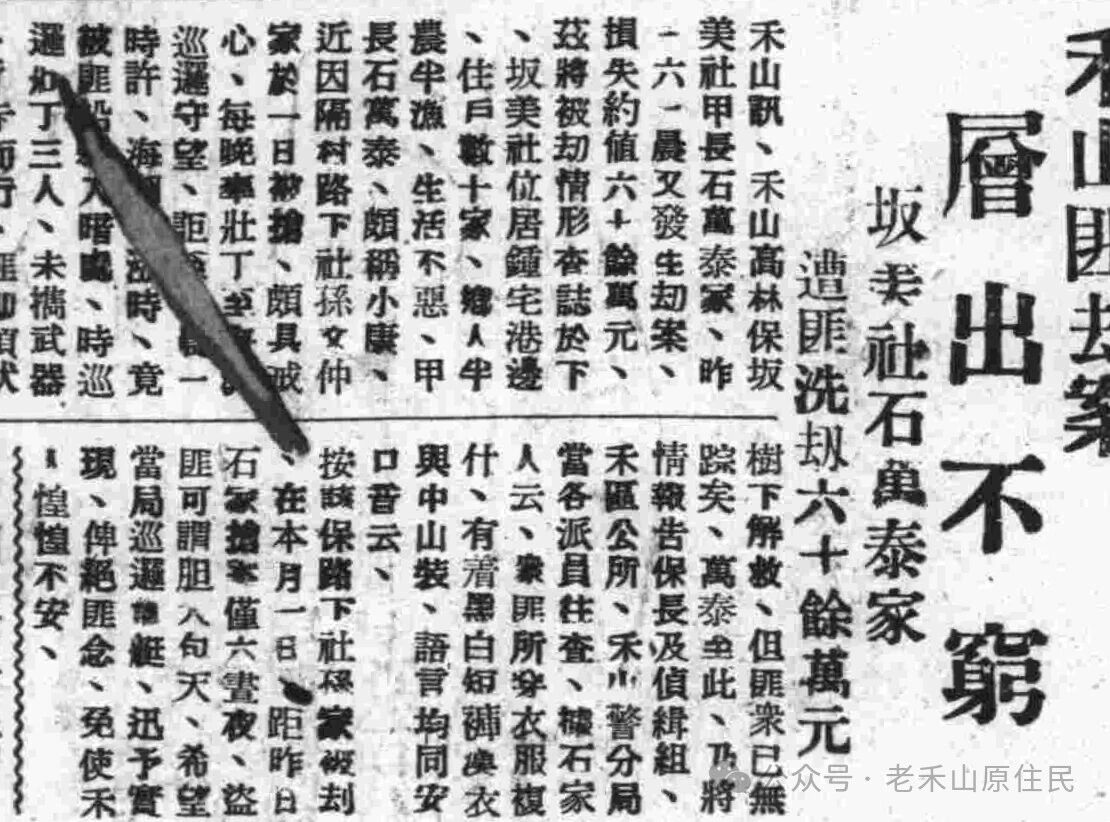 禾山匪劫案
層出不窮
坂美社石萬泰家
遭匪洗刼六十餘萬元
禾山訊、禾山高林保坂
美社甲長石萬泰家、昨
(六)晨又發生刼案、
損失約値六十餘萬元、
茲將被刼情形查誌於下
、坂美社位居鍾宅港邊
、住戶數十家、鄉人半
農半漁、生活不惡、甲
長石萬泰、頗稱小康、
近因隔村路下社孫文仲
家於一日被搶、頗具戒
心、每晚率壯丁至
巡邏守望、詎 一
時許、海潮 漲時、竟
被匪船 入暗 、時巡
邏 丁三人、未攜武器
而行、匪卽
樹下解救、但匪衆已無
踪矣、萬泰至此、乃將
情報告保長及偵緝組、
禾區公所、禾山警分局
當各派員往查、據石家
人云、衆匪所穿衣服複
什、有着黑白短褲與衣
與中山裝、語言均同安
口音云、
按該保路下社孫家被刼
、在本月一日、距昨日
石家搶案僅六晝夜、盜
匪可謂胆大包天、希望
當局巡邏 艇、迅予實
現、俾絕匪念、免使禾
山惶惶不安、
公众号·老禾山原住民